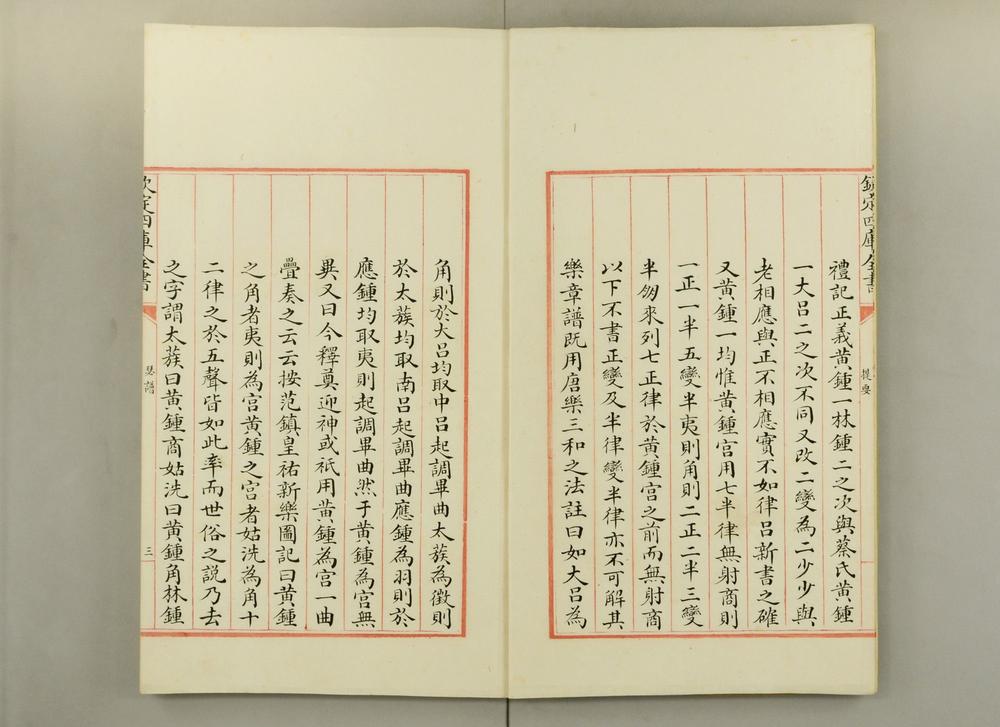 欽定四庫全書
提要
禮記正義黄鍾一林鍾二之次與蔡氏黄鍾
一大吕二之次不同又改二變為二少少與
老相應與正不相應實不如律吕新書之確
又黄鍾一均惟黄鍾宫用七半律無射商則
一正一半五變半夷則角則二正二半三變
半勿來列七正律於黄鍾宫之前而無射商
以下不書正變及半律變半律亦不可解其
樂章譜既用唐樂三和之法註曰如大吕為
角則於大吕均取中吕起調畢曲太蔟為徵則
於太蔟均取南吕起調畢曲應鍾為羽則於
應鍾均取夷則起調畢曲然于黄鍾為宫無
異又曰今釋奠迎神或祇用黄鍾為宫一曲
疊奏之云云按范鎮皇祐新樂圖記曰黄鍾
之角者夷則為宫黄鍾之宫者姑洗為角十
二律之於五聲皆如此率而世俗之説乃去
之字謂太蔟曰黄鍾商姑洗曰黄鍾角林鍾
欽定四庫全書
瑟譜
三